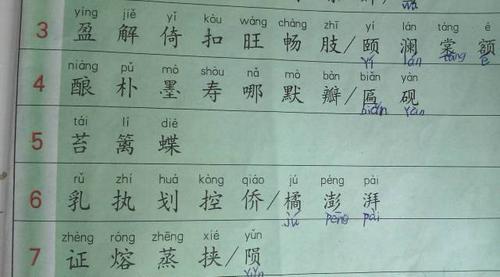 yíng jiě yǐ kòu wàng chàng zhī yí lán táng é
3 盈 解 倚 扣 旺 畅 肢/颐 澜 棠 额
yí lán táng
niàng pǔ mò shòu nǎ mò bàn biǎn yàn
4 酿 朴 墨 寿 哪 默 瓣/匾 砚
biǎn yàn
tái lí dié
5 苔 篱 蝶
rǔ zhí huá kòng qiáo jú péng pài
6 乳 执 划 控 侨/橘 澎 湃
jú péng pài
zhèng róng zhēng xié yǔn
7 证 熔 蒸 挟/陨
yǔn